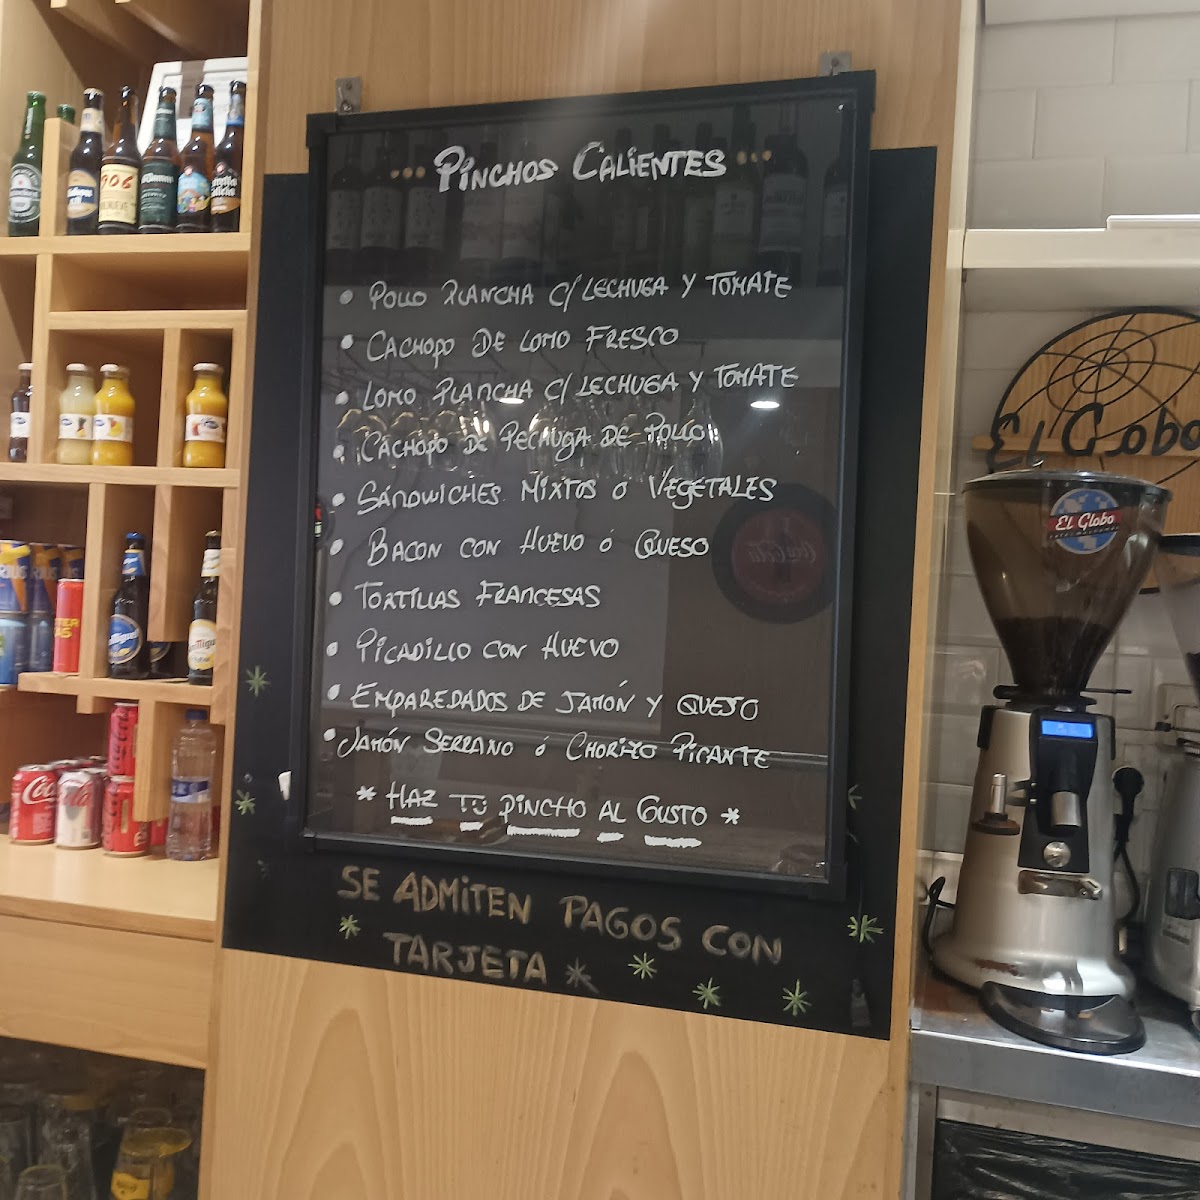 ... PINCHOS CALIENTES ...
• POLLO PLANCHA C/ LECHUGA Y TOMATE
• CACHOPO DE LOMO FRESCO
• LOMO PLANCHA C/ LECHUGA Y TOMATE
• CACHOPO DE PECHUGA DE POLLO
• SÁNDWICHES MIXTOS O VEGETALES
• BACON CON HUEVO Ó QUESO
• TORTILLAS FRANCESAS
• PICADILLO CON HUEVO
• EMPAREDADOS DE JAMÓN Y QUESO
• JAMÓN SERRANO Ó CHORIZO PICANTE
* HAZ TU PINCHO AL GUSTO *
SE ADMITEN PAGOS CON
TARJETA
El Globo
EL Globo
906
Coca-Cola